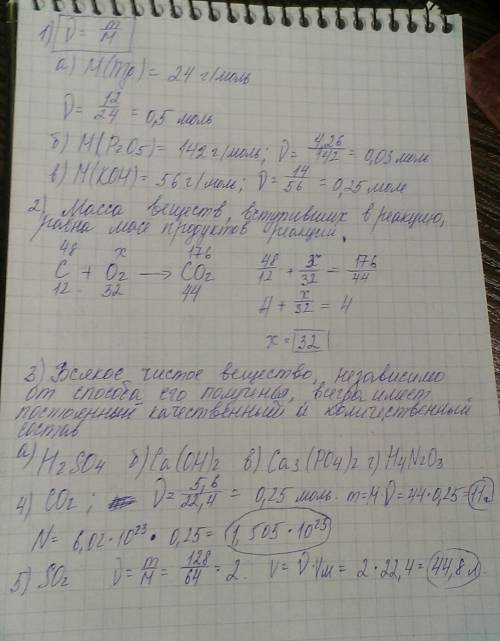 1) ν = m/M
a) M(Mg) = 24 г/моль
ν = 12/24 = 0,5 моль
б) M(P2O5) = 142 г/моль; ν = 4,26/142 = 0,03 моль
в) M(KOH) = 56 г/моль; ν = 14/56 = 0,25 моль
2) Масса веществ, вступивших в реакцию,
равна масе продуктов реакции.
48 x 176
C + O2 → CO2 48/12 + x/32 = 176/44
12 32 44
4 + x/32 = 4
x = 32
3) Всякое чистое вещество, независимо
от способа его получения, всегда имеет
постоянный качественный и количественный
состав
а) H2SO4 б) Ca(OH)2 в) Ca3(PO4)2 г) H4N2O3
4) CO2; ν = 5,6/22,4 = 0,25 моль. m = M·ν = 44·0,25 = 11г.
N = 6,02·10^23 · 0,25 = 1,505·10^23
5) SO2 ν = m/M = 128/64 = 2. V = ν·Vм = 2·22,4 = 44,8 л.